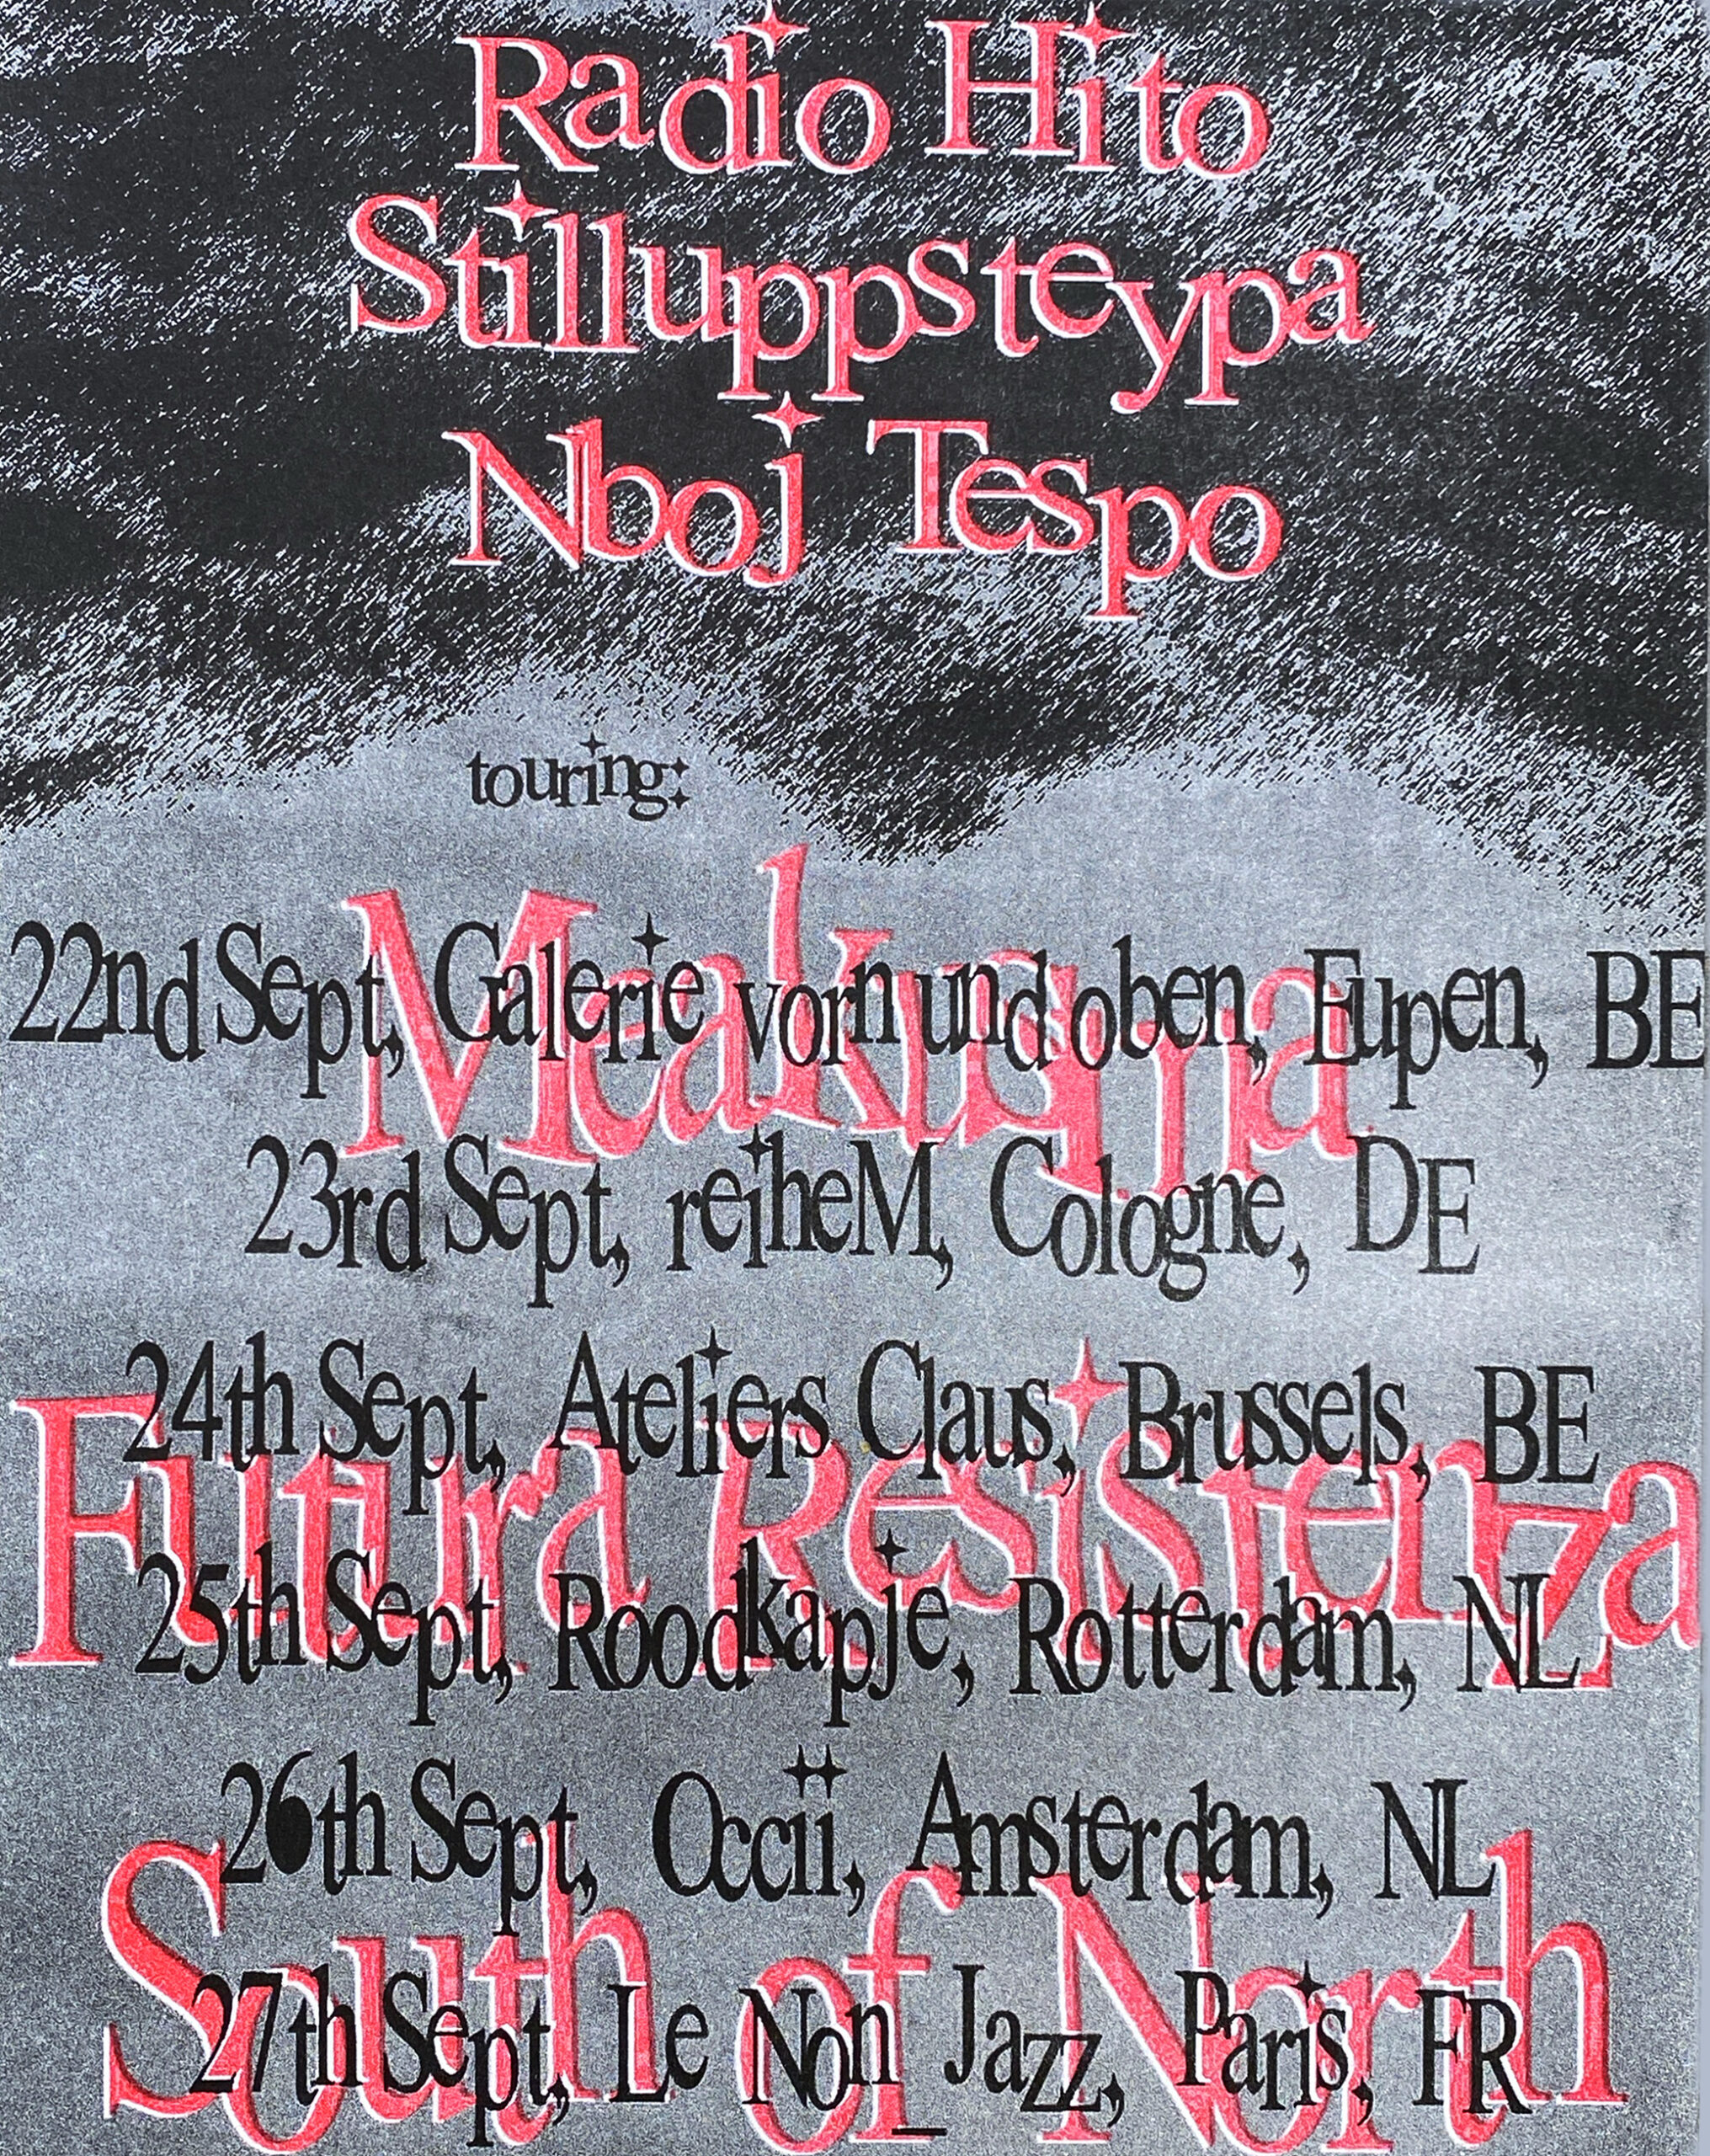 Radio Hito
Stilluppsteypa
Nboj Tespo
touring:
Meakusma
22nd Sept, Galerie vorn und oben, Eupen, BE
23rd Sept, reiheM, Cologne, DE
24th Sept, Ateliers Claus, Brussels, BE
Futura Resistenza
25th Sept, Roodkapje, Rotterdam, NL
26th Sept, Occii, Amsterdam, NL
South of North
27th Sept, Le Non_Jazz, Paris, FR